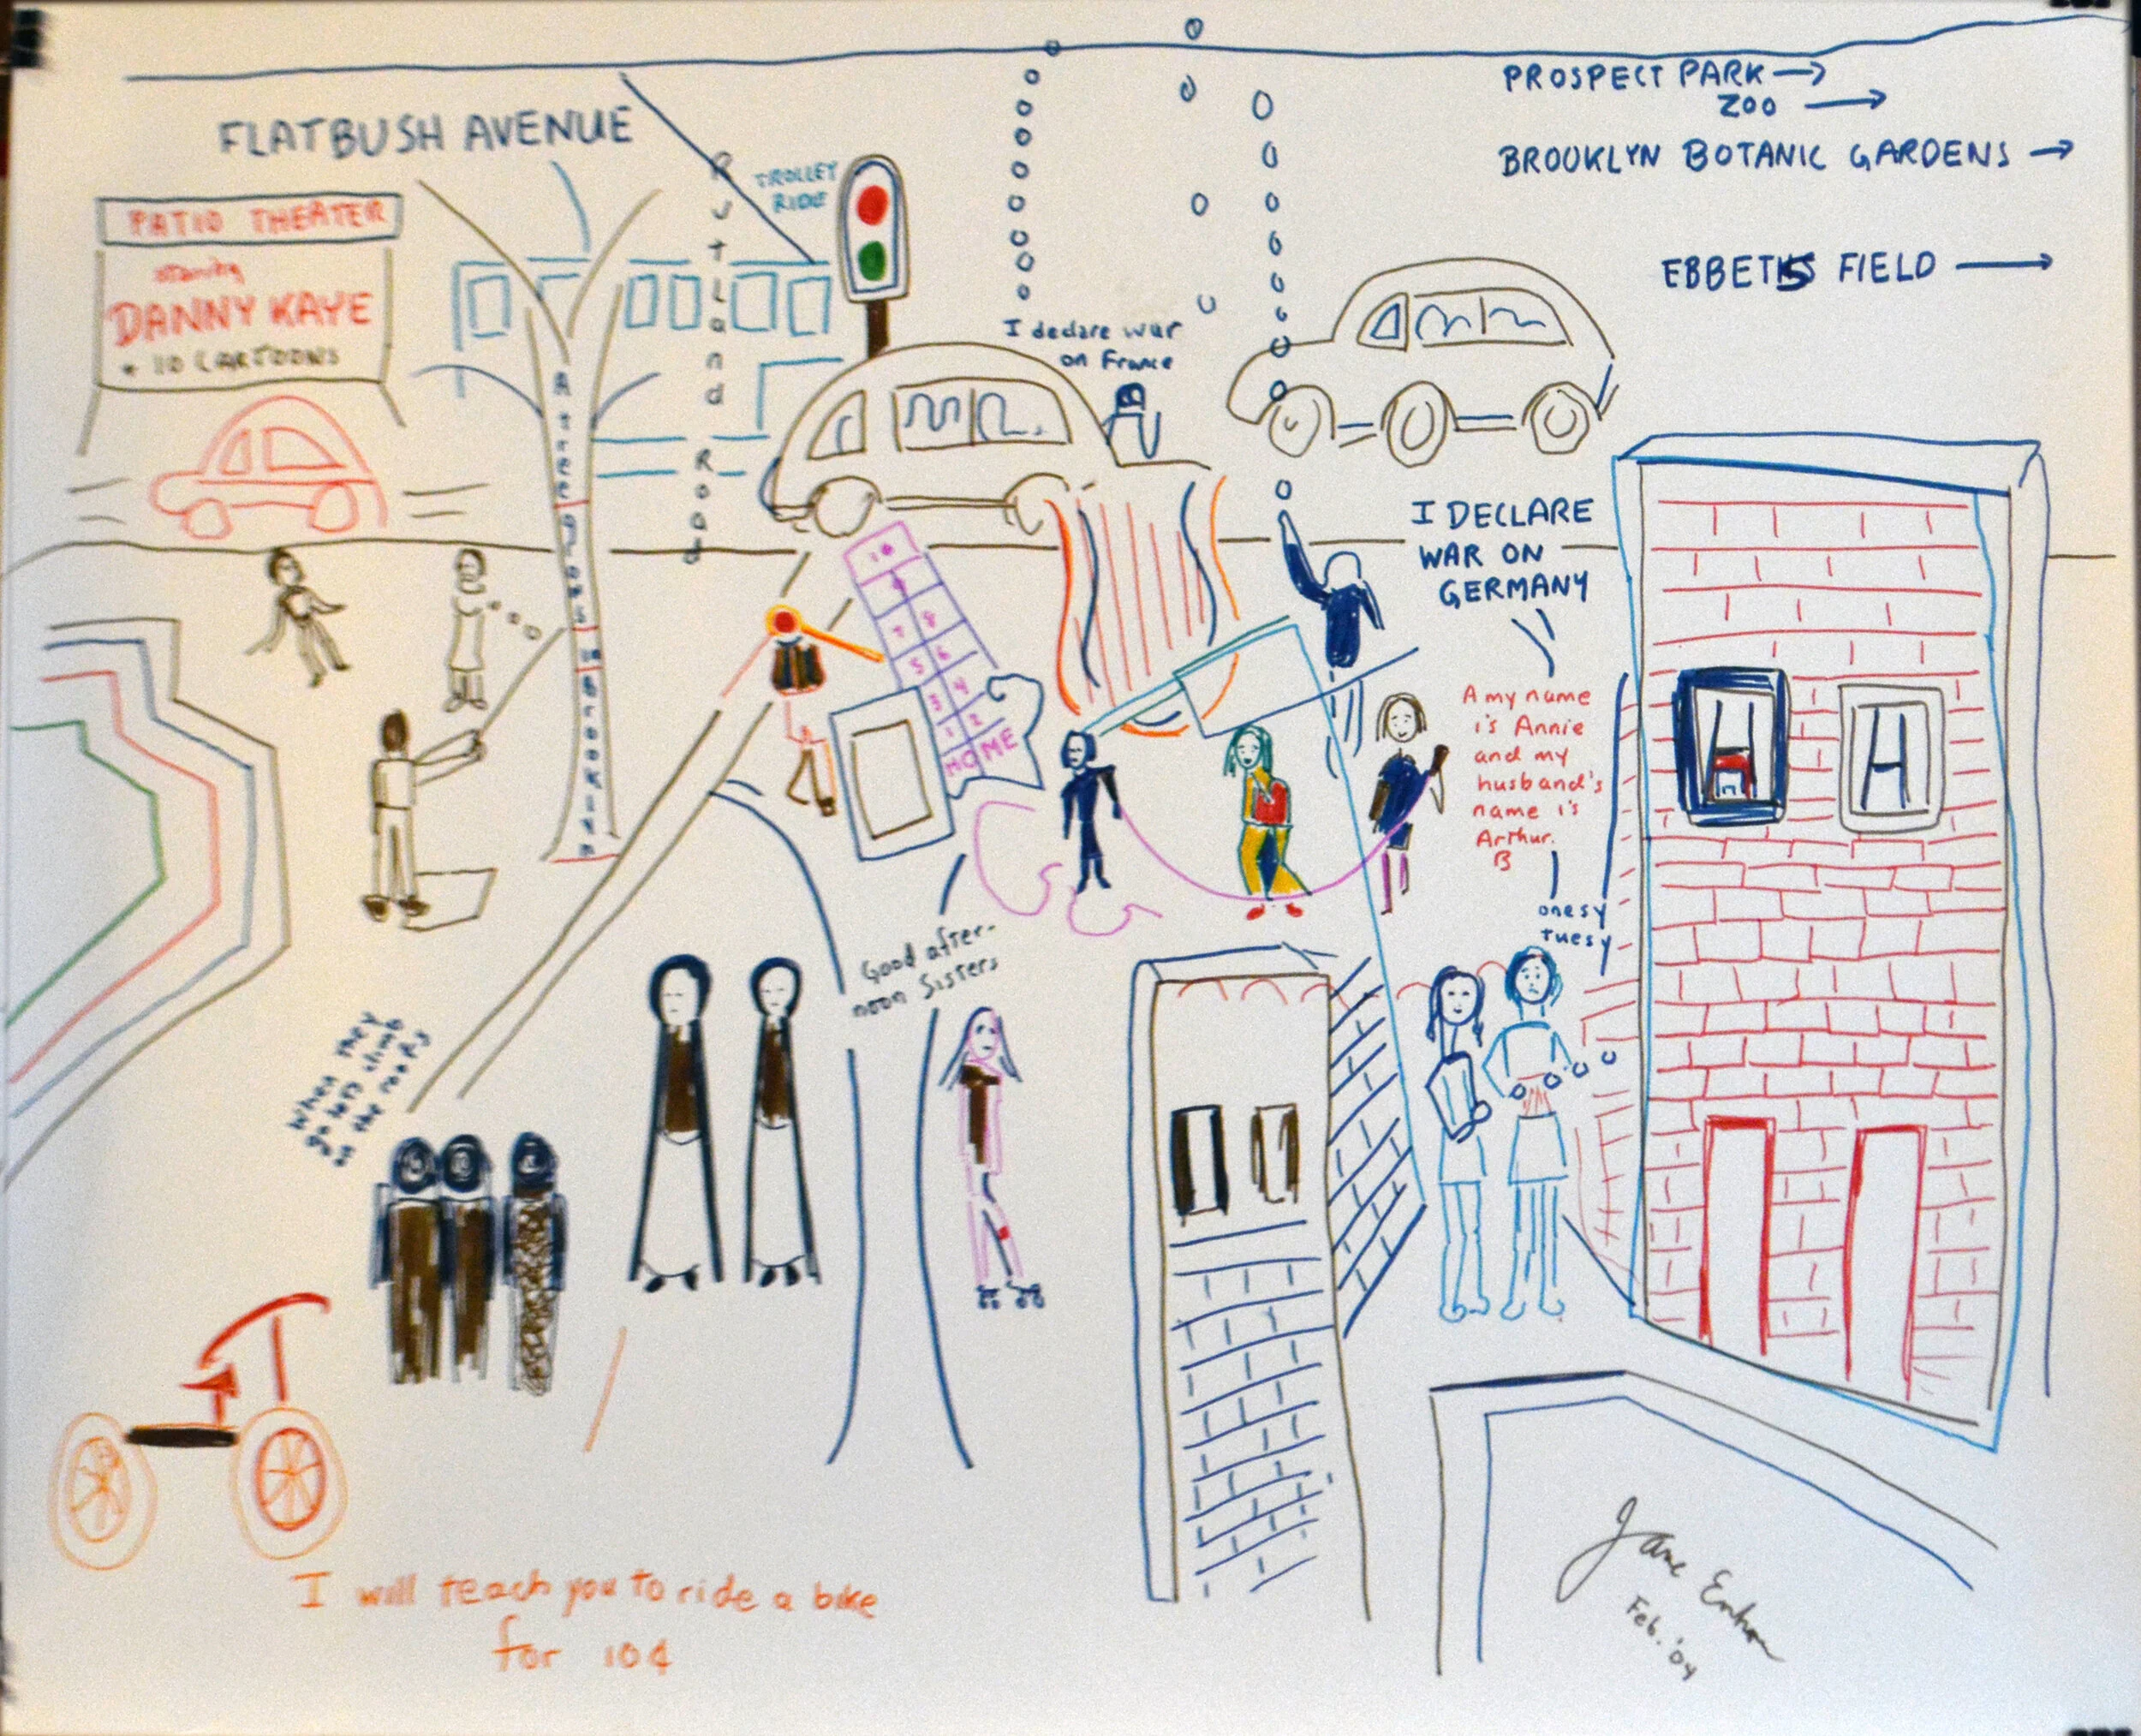 FLATBUSH AVENUE
PROSPECT PARK →
ZOO →
BROOKLYN BOTANIC GARDENS →
EBBETS FIELD →
PATIO THEATER
starring
DANNY KAYE
+ 10 CARTOONS
TROLLEY
RIDE
Rutland Road
A tree grows in Brooklyn
I declare war
on France
I DECLARE
WAR ON
GERMANY
10
9
7 8
5 6
3 4
1 2
HOME
A my name
is Annie
and my
husband's
name is
Arthur.
B
onesy
tuesy
Good after-
noon Sisters
When they
go lets climb
on the roofs
I will teach you to ride a bike
for 10¢
Jane
Feb. '04